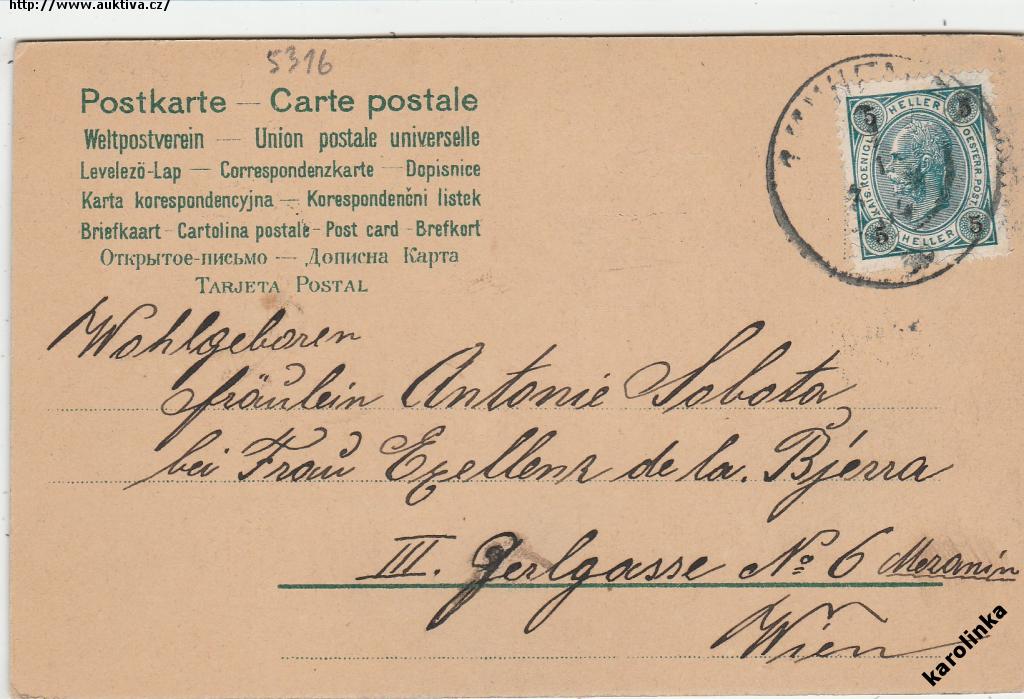 http://www.auktiva.cz/
5316
Postkarte — Carte postale
Weltpostverein — Union postale universelle
Levelezö-Lap — Correspondenzkarte — Dopisnice
Karta korespondencyjna — Korespondenčni listek
Briefkaart - Cartolina postale - Post card - Brefkort
Открытое-письмо — Дописна Карта
TARJETA POSTAL
5 HELLER 5
KAIS. KOENIGL. OESTERR. POST.
5 HELLER 5
Wohlgeboren
Fräulein Antonie Sobota
bei Frau Exellenz de la Bjerra
III. Gerlgasse No 6 Mezanin
Wien
karolinka